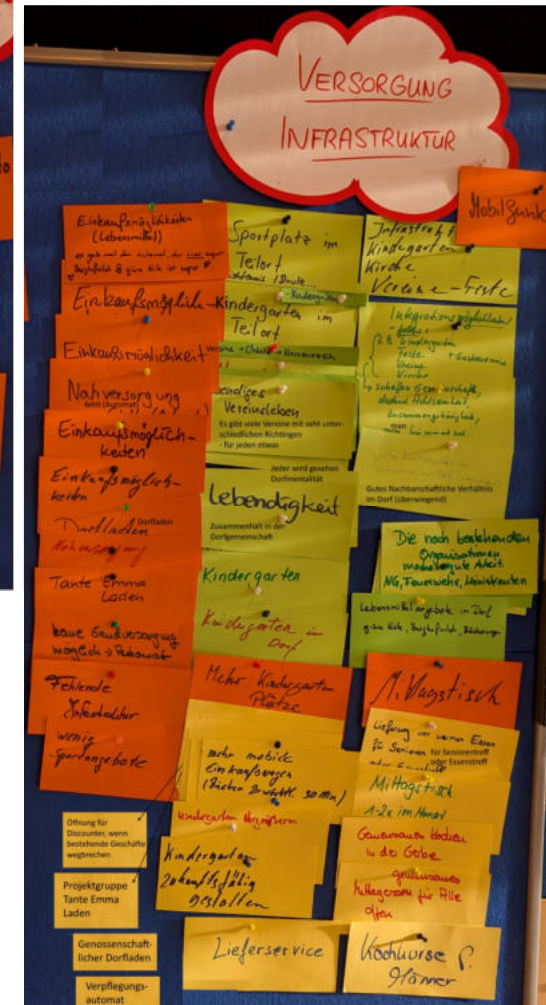 VERSORGUNG
INFRASTRUKTUR
Mobilfunk
Einkaufsmöglichkeiten
(Lebensmittel)
Einkaufsmöglich-
Einkaufsmöglichkeit
Nahversorgung
fehlt (Automat)
Einkaufsmöglich-
keiten
Einkaufsmöglich-
keiten
Dorfladen
Dorfladen
Nahversorgung
Tante Emma
Laden
keine Grundversorgung
möglich → Penkowaf
Fehlende
Infrastruktur
wenig
Sportangebote
Öffnung für
Discounter, wenn
bestehende Geschäfte
wegbrechen
Projektgruppe
Tante Emma
Laden
Genossenschaft-
licher Dorfladen
Verpflegungs-
automat
Sportplatz im
Teilort
Kindergarten im
Teilort
Vereinsleben
Es gibt viele Vereine mit seht unter-
schiedlichen Richtingen
- für jeden etwas
Jeder wird gesehen
Dorfmentalität
Lebendigkeit
Zusammenhalt in der
Dorfgemeinschaft
Kindergarten
Kindergarten im
Dorf
Mehr Kindergarten
Plätze
mehr mobile
Einkaufswagen
Kindergarten
Zukunftsfähig
gestalten
Lieferservice
Infrastruktur
Kindergarten
Kirche
Vereine - Feste
Integrationsmöglichkeiten
z.B. Kindergarten
Feste
Vereine
Kirche
Gutes Nachbarschaftliche Verhältnis
im Dorf (überwiegend)
Die noch bestehenden
Organisationen
machen gute Arbeit
NG, Feuerwehr, Ministranten
Lebensmittelangebote im Dorf
Mittagstisch
Lieferung von warmen Essen
für Senioren
für Seniorentreff
oder Essenstreff
Mittagstisch
1-2x im Monat
Gemeinsames Kochen
in der Gerbe
gemeinsames
Mittagessen für Alle
offen
Kochkurse f.
Männer